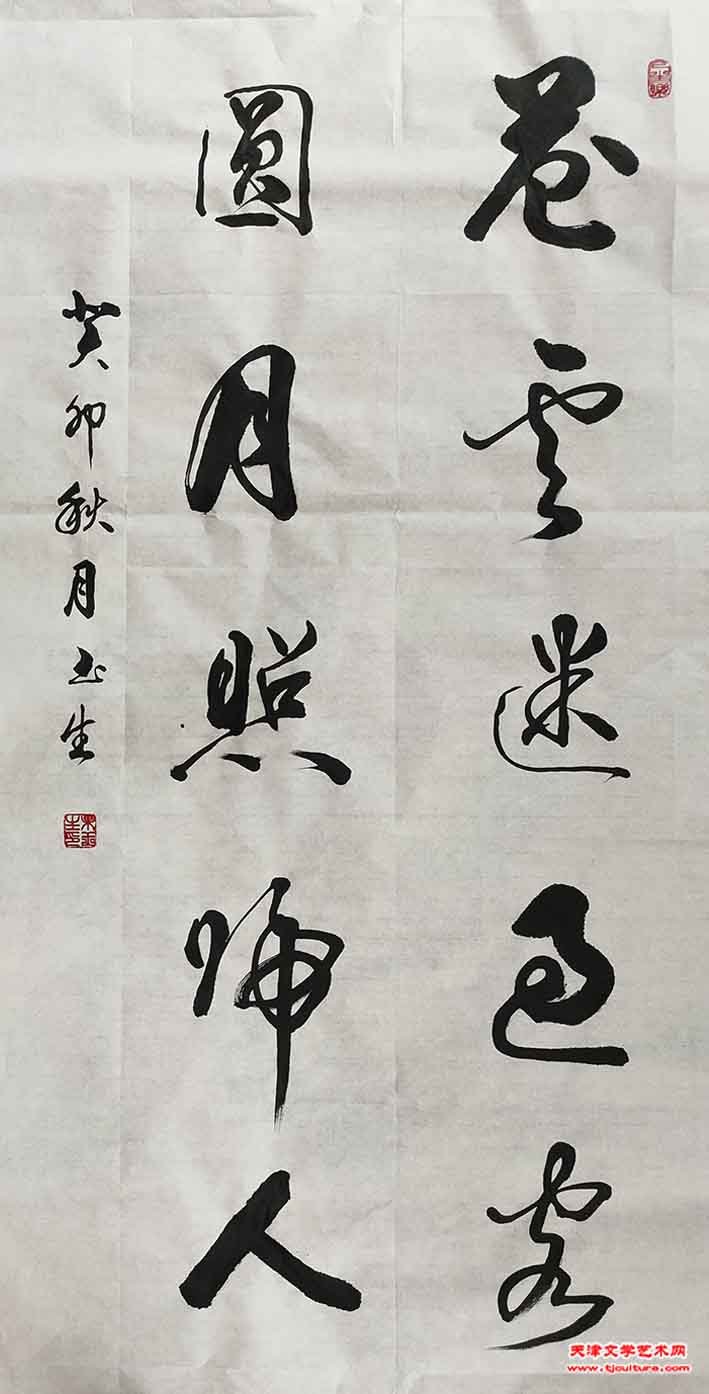 卷云迷过客
圆月照归人
癸卯秋月生
天津文学艺术网
www.tjculture.com